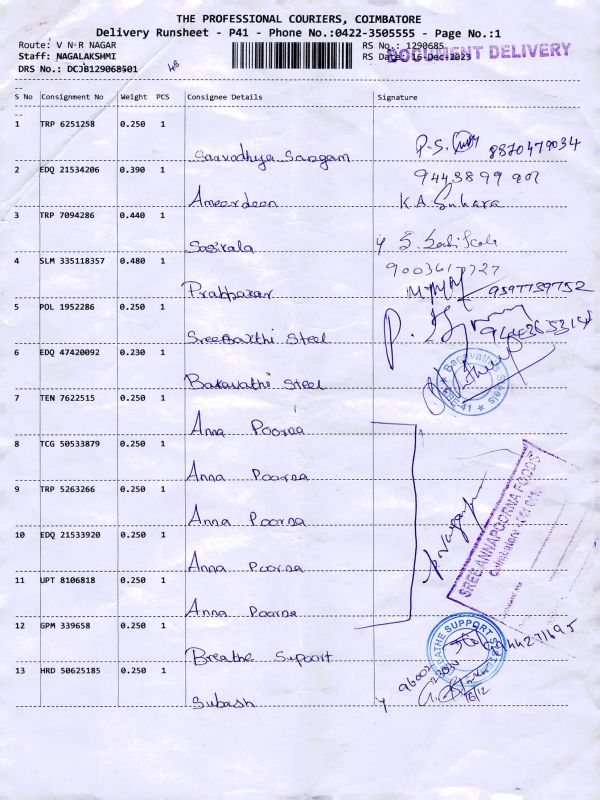 THE PROFESSIONAL COURIERS, COIMBATORE
Delivery Runsheet - P41 - Phone No.:0422-3505555 - Page No.:1
Route: V N R NAGAR
RS No.: 1290685
DOCUMENT DELIVERY
Staff: NAGALAKSHMI
RS Date: 16-Dec-2023
DRS No.: DCJB129068501
S No Consignment No Weight PCS Consignee Details Signature
1 TRP 6251258 0.250 1
Sarvodhya Sarogam P.S. 8870479034
2 EDQ 21534206 0.390 1
Ameerdeen K.A Suhara
3 TRP 7094286 0.440 1
Sasikala
4 SLM 335118357 0.480 1
Prabhakar 9597759752
5 POL 1952286 0.250 1
Sreebakthi Steel
6 EDQ 47420092 0.230 1
Bakavathi Steel
7 TEN 7622515 0.250 1
Anna Poorna
8 TCG 50533879 0.250 1
Anna Poorna
9 TRP 5263266 0.250 1
Anna Poorna
10 EDQ 21533920 0.250 1
Anna Poorna
11 UPT 8106818 0.250 1
Anna Poorna
SREE ANNAPOORNA FOODS
12 GPM 339658 0.250 1
Breathe Support
13 HRD 50625185 0.250 1
Subash
16/12